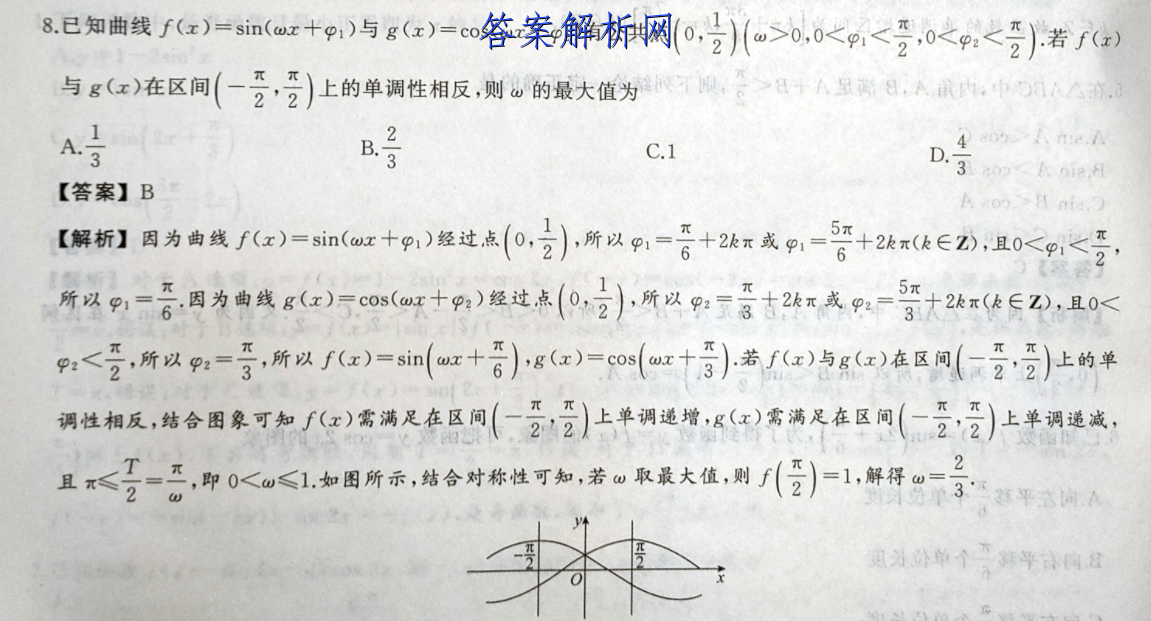 8.已知曲线 f(x)=sin(ωx+φ₁)与 g(x)=cos(ωx+φ₂)有公共点(0,1/2)(ω>0,0<φ₁<π/2,0<φ₂<π/2).若 f(x)
答案解析网
与 g(x)在区间(-π/2,π/2)上的单调性相反,则 ω 的最大值为
A.1/3 B.2/3 C.1 D.4/3
【答案】B
【解析】因为曲线 f(x)=sin(ωx+φ₁)经过点(0,1/2),所以 φ₁=π/6+2kπ 或 φ₁=5π/6+2kπ(k∈Z),且0<φ₁<π/2,
所以 φ₁=π/6.因为曲线 g(x)=cos(ωx+φ₂)经过点(0,1/2),所以 φ₂=π/3+2kπ 或 φ₂=5π/3+2kπ(k∈Z),且0<
φ₂<π/2,所以 φ₂=π/3,所以 f(x)=sin(ωx+π/6),g(x)=cos(ωx+π/3).若 f(x)与g(x)在区间(-π/2,π/2)上的单
调性相反,结合图象可知 f(x)需满足在区间(-π/2,π/2)上单调递增,g(x)需满足在区间(-π/2,π/2)上单调递减,
且 π≤T/2=π/ω,即 0<ω≤1.如图所示,结合对称性可知,若 ω 取最大值,则 f(π/2)=1,解得 ω=2/3.
y
-π/2 π/2
O x